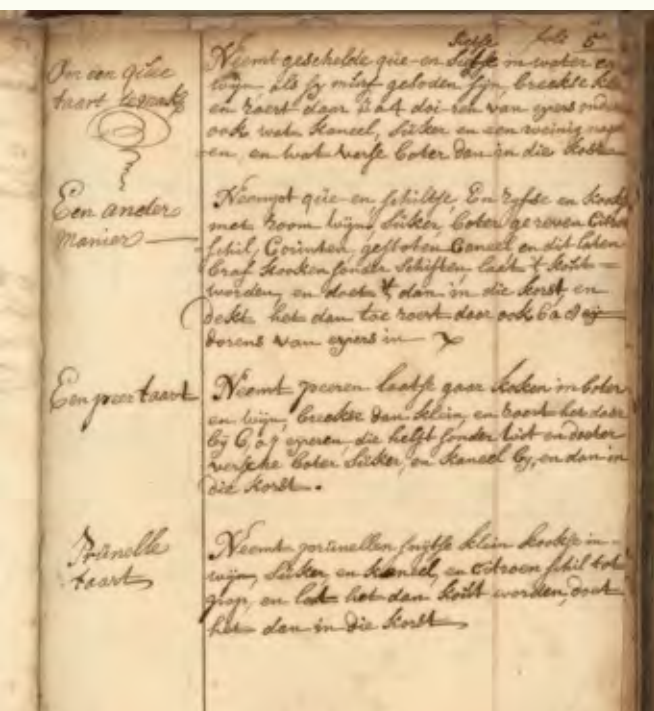 folo 5
Om een quee
taart te maaken
Neemt geschelde que-en in water en
wijn als sy murf gesoden sijn, breekse klein
en roert daar 3 a 4 doi-ren van eyers onder
ook wat Kaneel, Suker en een weinig
en, en wat verse boter dan in die Korst
Een ander
Manier
Neempt que-en schiltse En ryfse en Kookse
met room wijn, Suker, boter gereven Citroen
schil, Corinten gestoten Caneel en dit laten
braf Kooken sonder schiften laat 't kout
worden, en doet 't dan in die Korst, en
dekt het dan toe roert daer ook 6 a 8
dorens van eyers in
Een peer taart
Neemt peeren laatse gaar Koken in boter
en wijn, breekse dan klein, en roert het daer
by 6, a 7 eyeren, die helft sonder wit en doeter
versche boter Suker, en Kaneel by, en dan in
die Korst.
Prünelle
taart
Neemt prünellen snijtse klein Kooktse in
wijn, Suker, en Kaneel, en Citroen schil tot
pap, en laet het dan kout worden, doet
het dan in die Korst